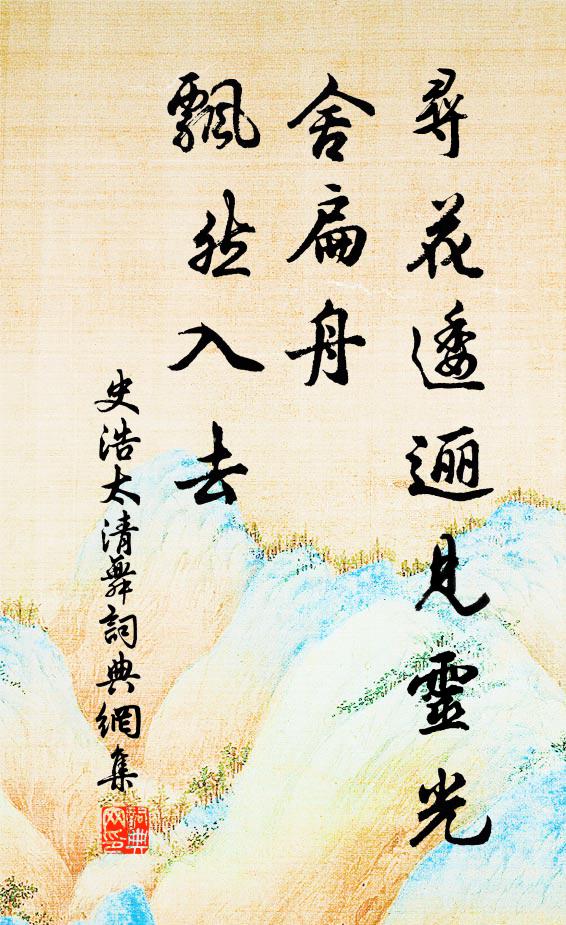 尋花逶逦見靈光
舍扁舟
飄然入去
史浩太清舞詞典網集
詞典网印